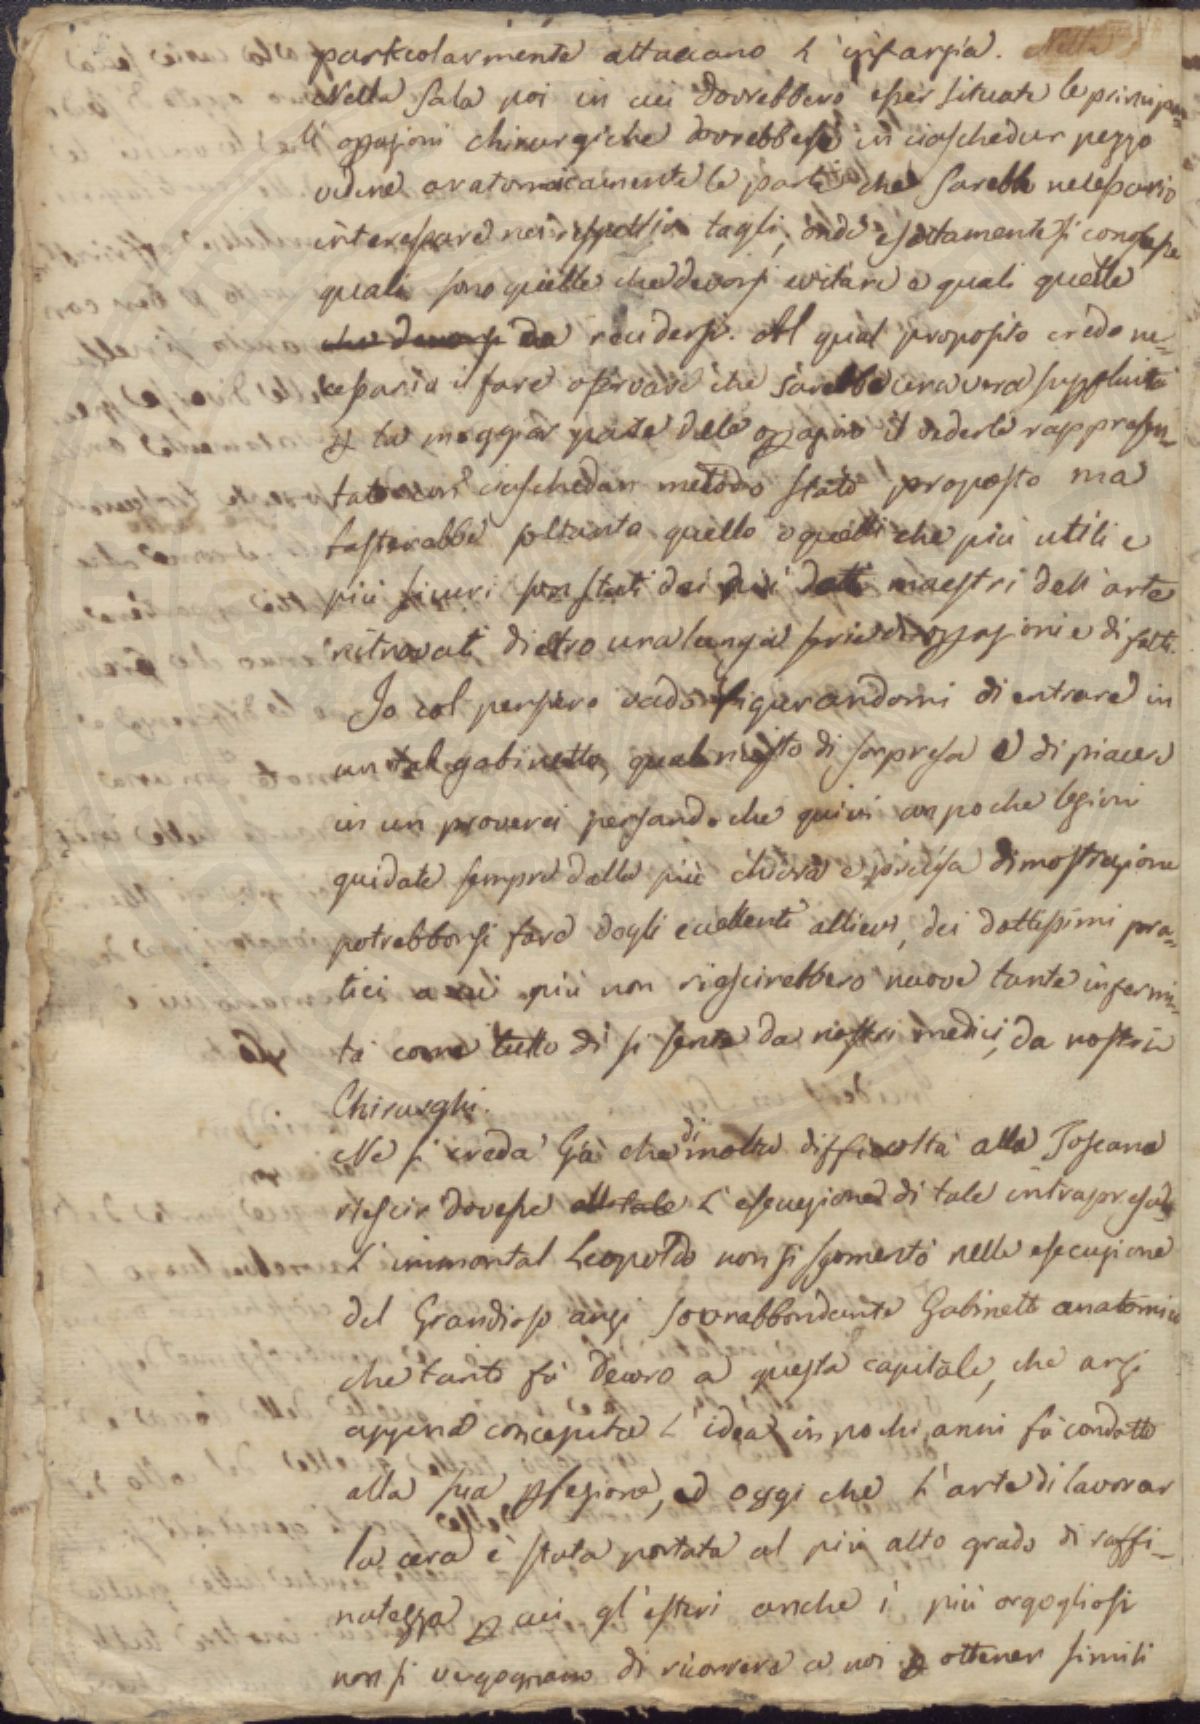 particolarmente attaccano l'infanzia. Nella
Nella Sala poi in cui dovrebbero esser situate le princip̃a=
li opp̃azioni chirurgiche dovrebbesi in ciaschedun pezzo
vedere anatomicamente le parti che sarebbe necessario
interessare nei rispettivi tagli, onde esattamente si conoscesse
quali sono quelle che devonsi evitare e quali quelle
che devonsi da recidersi. Al qual proposito credo ne=
cessario il fare osservare che sarebbe una vera superfluità
p la maggior parte delle opp̃azioni il vederle rappresen=
tate con ciaschedun metodo stato proposto ma
basterebbe soltanto quello o quelli che più utili e
più sicuri son stati dai più dotti maestri dell'arte
ritrovati dietro una lunga serie di opp̃azioni e di fatti.
Io col pensiero vado figurandomi di entrare in
un tal gabinetto, qual misto di sorpresa e di piacere
in un proverei pensando che quivi con poche lezioni
guidate sempre dalla più chiara e precisa dimostrazione
potrebbonsi fare degli eccellenti allievi, dei dottissimi pra=
tici a cui più non riescirebbero nuove tante infermi=
tà come tutto dì si sente da nostri medici, da nostri
Chirurghi.
Ne si creda Già che di molta difficoltà alla Toscana
riescir dovesse alle tale l'esecuzione di tale intrapresa
L'immortal Leopoldo non si sgomentò nella esecuzione
del Grandioso anzi sovrabbondante Gabinetto anatomico
che tanto fà decoro a questa capitale, che anzi
appena concepita l'idea in pochi anni fù condotto
alla sua pfezione, ed oggi che l'arte di lavorar
la cera è stata portata al più alto grado di raffi=
natezza p cui gl'esteri anche i più orgogliosi
non si vergognano di ricorrere a noi p ottener simili